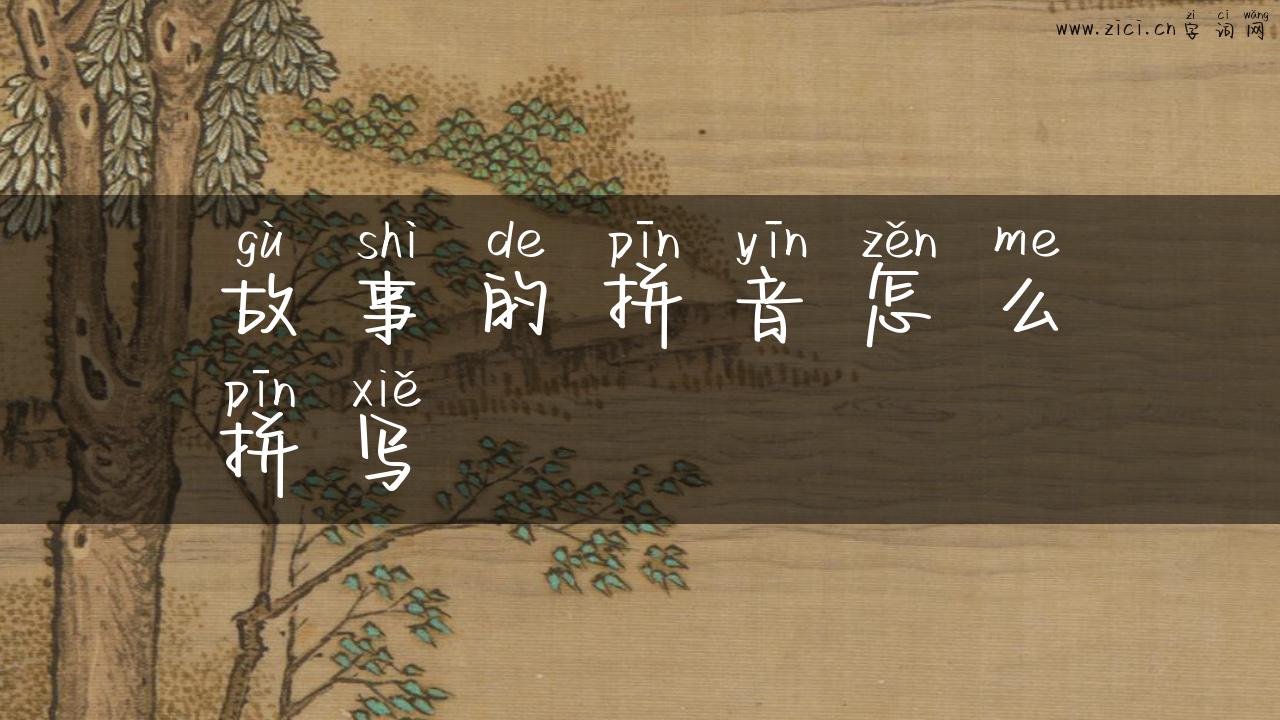 zì cí wǎng
www.zici.cn 字词网
gù shì de pīn yīn zěn me
故事的拼音怎么
pīn xiě
拼写